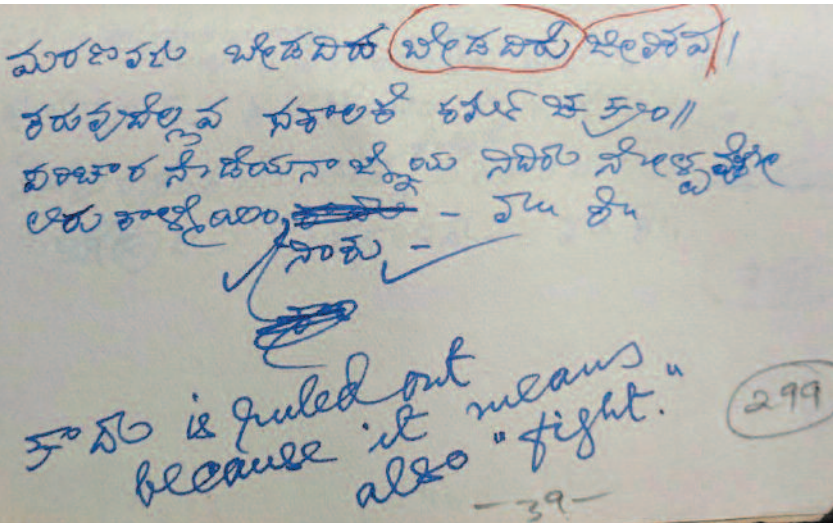 ಮರಣವನು ಬೇಡದಿರು ಬೇಡದಿರು ಜೀವಿತವ|
ತರುವುದೆಲ್ಲವ ಸಕಾಲಕೆ ಕರ್ಮ ಚಕ್ರಂ||
ಪರಿಚಾರ ನೊಡೆಯನಾಜ್ಞೆಯ ನಿದಿರು ನೋಳ್ಪವೊಲೇ
ಲಿರು ತಾಳ್ಮೆಯಿಂ, - ಮಂ ತಿಂ
ನಿಂತು -
ಕಾದು is ruled out
because it means
also "fight."
299
- 39 -